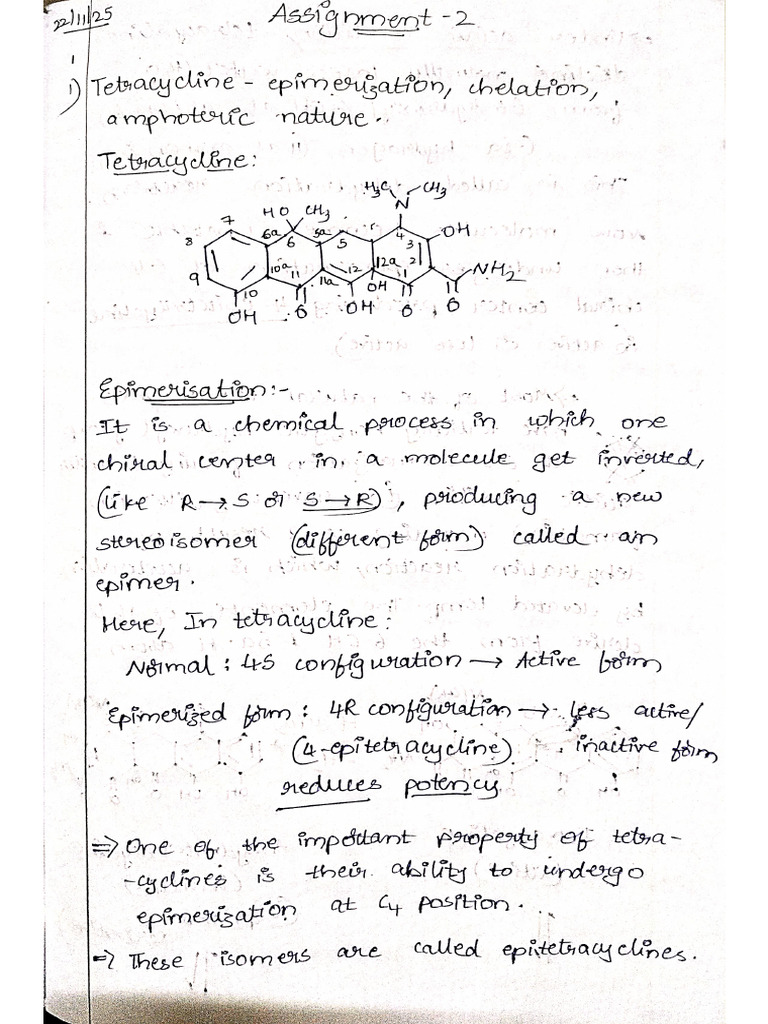 22/11/25
Assignment - 2
1) Tetracycline - epimerization, chelation,
amphoteric nature.
Tetracycline:
H₃C CH₃
N
HO CH₃
7 6a 6 5a 5 4 3 OH
8
9 10a 11 11a 12 12a 2 1 NH₂
10 OH O OH OH O O
Epimerisation:-
It is a chemical process in which one
chiral center in a molecule get inverted,
(like R→S or S→R), producing a new
stereoisomer (different form) called an
epimer.
Here, In tetracycline:
Normal : 4S configuration → Active form
Epimerized form : 4R configuration → Less active/
(4-epitetracycline) inactive form
reduces potency
⇒ One of the important property of tetra-
-cyclines is their ability to undergo
epimerization at C₄ position.
⇒ These isomers are called epitetracyclines.